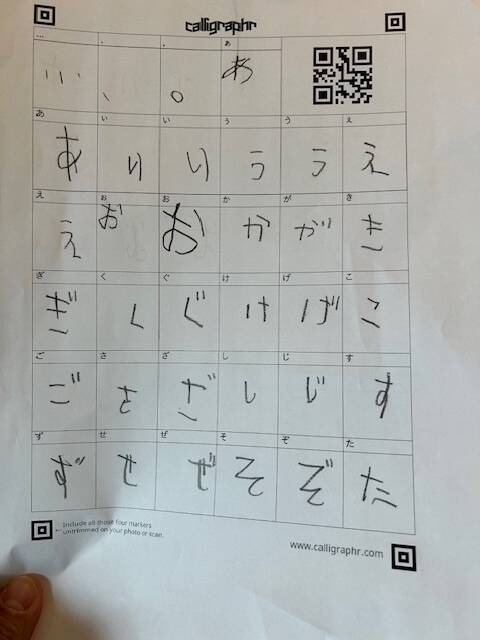 calligraphr
… 、 。 ぁ
… 、 。 あ
あ ぃ い ぅ う ぇ
あ い い う う え
え ぉ お か が き
え お お か が き
ぎ く ぐ け げ こ
ぎ く ぐ け げ こ
ご さ ざ し じ す
ご さ ざ し じ す
ず せ ぜ そ ぞ た
ず せ ぜ そ ぞ た
Include all those four markers
untrimmed on your photo or scan.
www.calligraphr.com